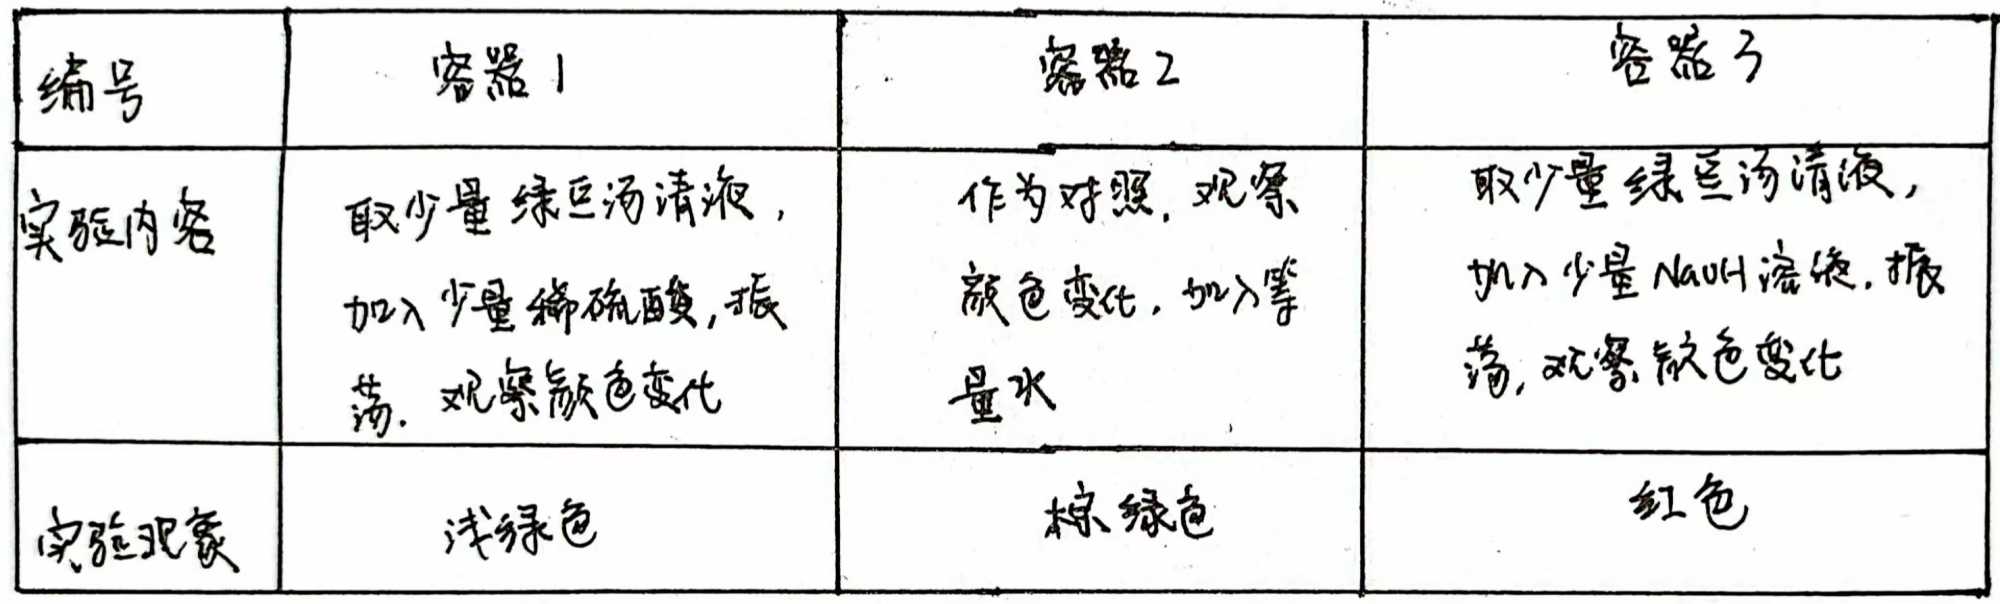 编号
容器1
容器2
容器3
实验内容
取少量绿豆汤清液,
加入少量稀硫酸,振
荡.观察颜色变化
作为对照,观察
颜色变化,加入等
量水
取少量绿豆汤清液,
加入少量NaOH溶液.振
荡,观察颜色变化
实验现象
浅绿色
棕绿色
红色